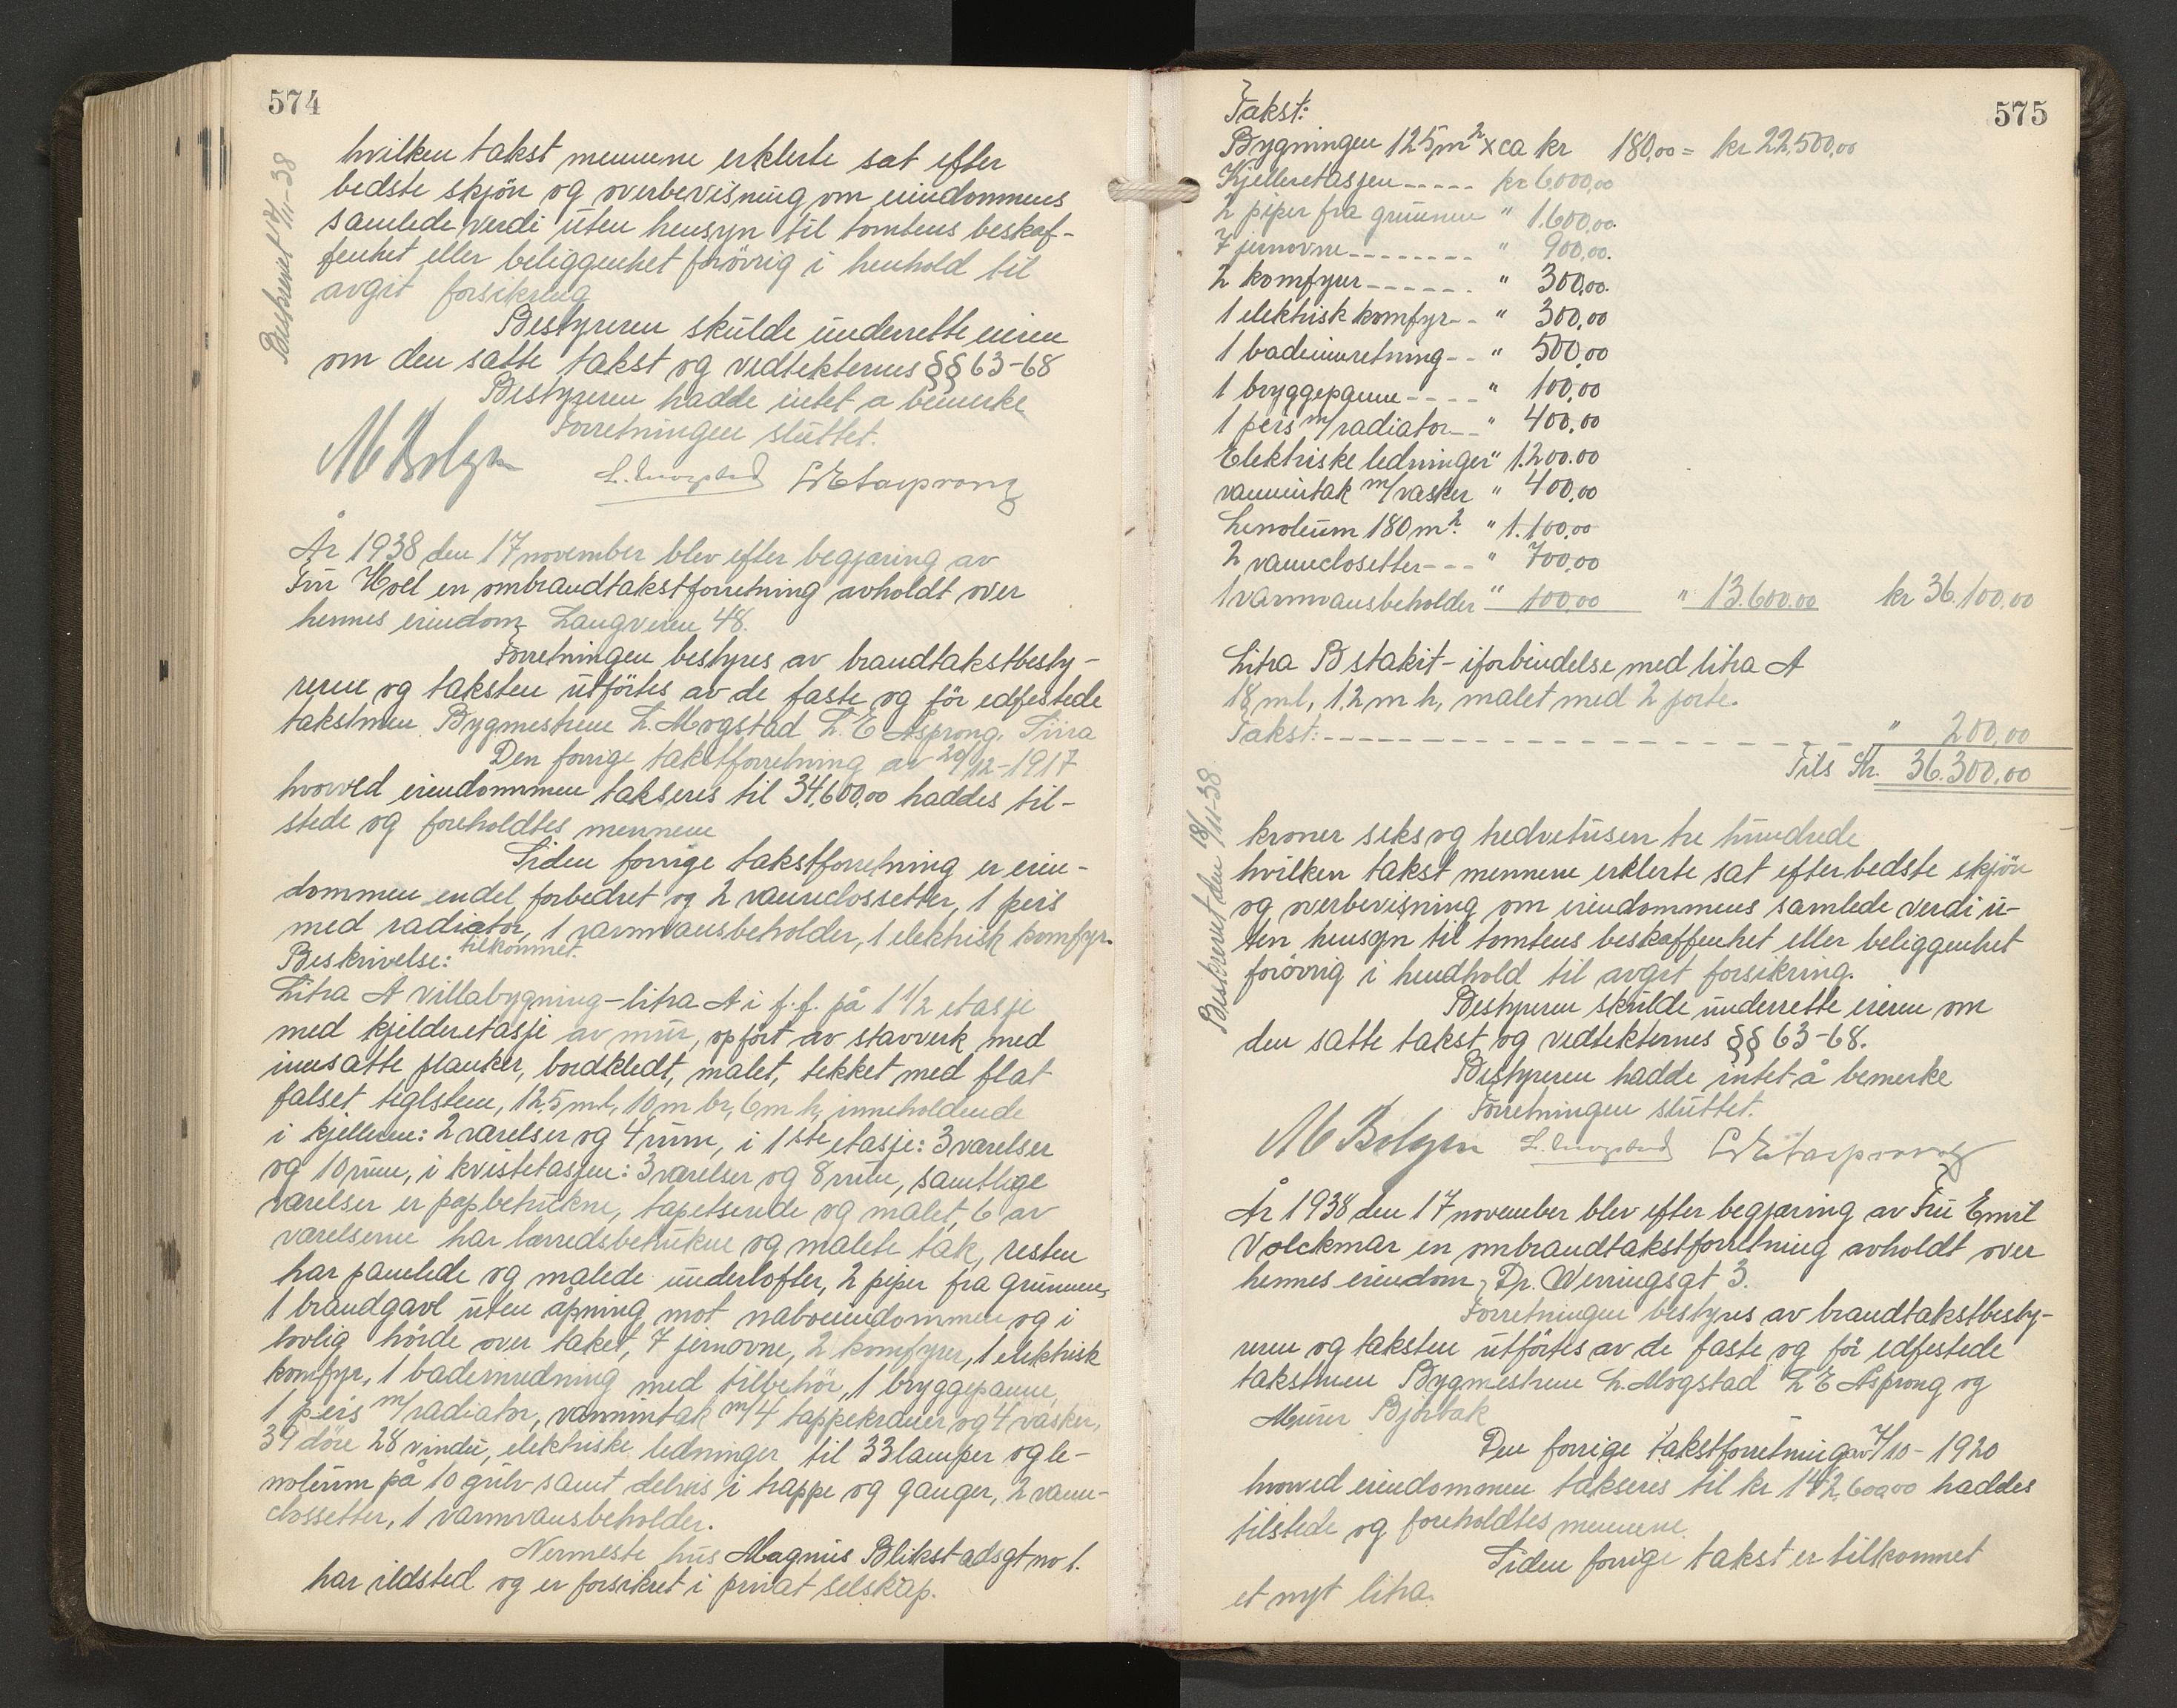 574
hvilken takst mennene erklerte sat efter
bedste skjön og overbevisning om eiendommens
samlede verdi uten hensyn til tomtens beskaf-
fenhet eller beliggenhet forövrig i henhold til
avgit forsikring
Bestyreren skulde underrette eieren
om den satte takst og vedtekternes §§ 63-68
Bestyreren hadde intet a bemerke
Forretningen sluttet.
M Bolgen L. Mogstad L E Asprong
År 1938 den 17 november blev efter begjæring av
Fru Holt en ombrandtakstforretning avholdt over
hennes eiendom Langveien 48.
Forretningen bestyres av brandtakstbesty-
reren og taksten utförtes av de faste og för edfestede
takstmen Bygmestrene L. Mogstad L. E Asprong,
Den forrige takstforretning av 20/12-1917
hvorved eiendommen takseres til 34,600,00 haddes til-
stede og foreholdtes mennene
Siden forrige takstforretning er eien-
dommen endel forbedret og 2 vannclossetter, 1 peis
med radiator, 1 varmvansbeholder, 1 elektrisk komfyr.
Beskrivelse: tilkommet.
Litra A villabygning-litra A i f.f. på 1 1/2 etasje
med kjelderetasje av mur, opført av stavverk med
innsatte planker, bordkledt, malet, tekket med flat
falset teglsten, 12,5 m l, 10 m br, 6 m h, inneholdende
i kjelleren: 2 værelser og 4 rum, i 1ste etasje: 3 værelser
og 10 rum, i kvistetasjen: 3 værelser og 8 rum, samtlige
værelser er papbetrukne, tapetserede og malet, 6 av
værelserne har lærredsbetrukne og malete tak, resten
har panelede og malede underlofter, 2 piper fra grunnen,
1 brandgavl uten åpning mot naboeiendommen og i
lovlig höide over taket, 7 jernovne, 2 komfyrer, 1 elektrisk
komfyr, 1 badeinredning med tilbehör, 1 bryggepanne,
1 peis m/radiator, vanninntak m/4 tappekraner og 4 vasker,
39 döre 28 vindu, elektriske ledninger til 33 lamper og le-
noleum på 10 gulv samt delvis i trappe og ganger, 2 vann-
clossetter, 1 varmvansbeholder.
Nermeste hus Magnus Blikstadsgt no 1.
har ildsted og er forsikret i privat selskap.
575
Takst:
Bygningen 125 m2 x ca kr 180,00 = kr 22.500,00
Kjelleretasjen ----- kr 6.000,00
2 piper fra grunnen " 1.600,00.
7 jernovne -------- " 900,00.
2 komfyrer ------ " 300,00.
1 elektrisk komfyr -- " 300,00
1 badeinnretning -- " 500,00
1 bryggepanne ---- " 100,00
1 peis m/radiator -- " 400,00
Elektriske ledninger " 1.200.00
vanninntak m/vasker " 400,00
Lenoleum 180 m2. " 1.100,00
2 vannclosetter --- " 700,00
1 varmvansbeholder " 100,00 " 13.600,00 kr 36.100,00
Litra B stakit - iforbindelse med litra A
18 m l, 1.2 m h, malet med 2 porte.
Takst: -------------------- " 200,00
Tils Kr. 36.300,00
Beskrevet den 18/11-38
kroner seks og tredvetusen tre hundrede
hvilken takst mennene erklerte sat efter bedste skjön
og overbevisning om eiendommens samlede verdi u-
ten hensyn til tomtens beskaffenhet eller beliggenhet
forövrig i hendhold til avgit forsikring.
Bestyreren skulde underrette eieren om
den satte takst og vedtekternes §§ 63-68.
Bestyreren hadde intet å bemerke
Forretningen sluttet.
M Bolgen L. Mogstad L E Asprong
År 1938 den 17 november blev efter begjæring av Fru Emil
Volckmar en ombrandtakstforretning avholdt over
hennes eiendom, Dp. Werringsgt 3.
Forretningen bestyres av brandtakstbesty-
reren og taksten utförtes av de faste og för edfestede
takstmen Bygmestrene L. Mogstad L E Asprong og
Murer Bjorbak
Den forrige takstforretning av 7/10-1920
hvorved eiendommen takseres til kr 142,600,00 haddes
tilstede og foreholdtes mennene.
Siden forrige takst er tilkommet
et nyt litra.